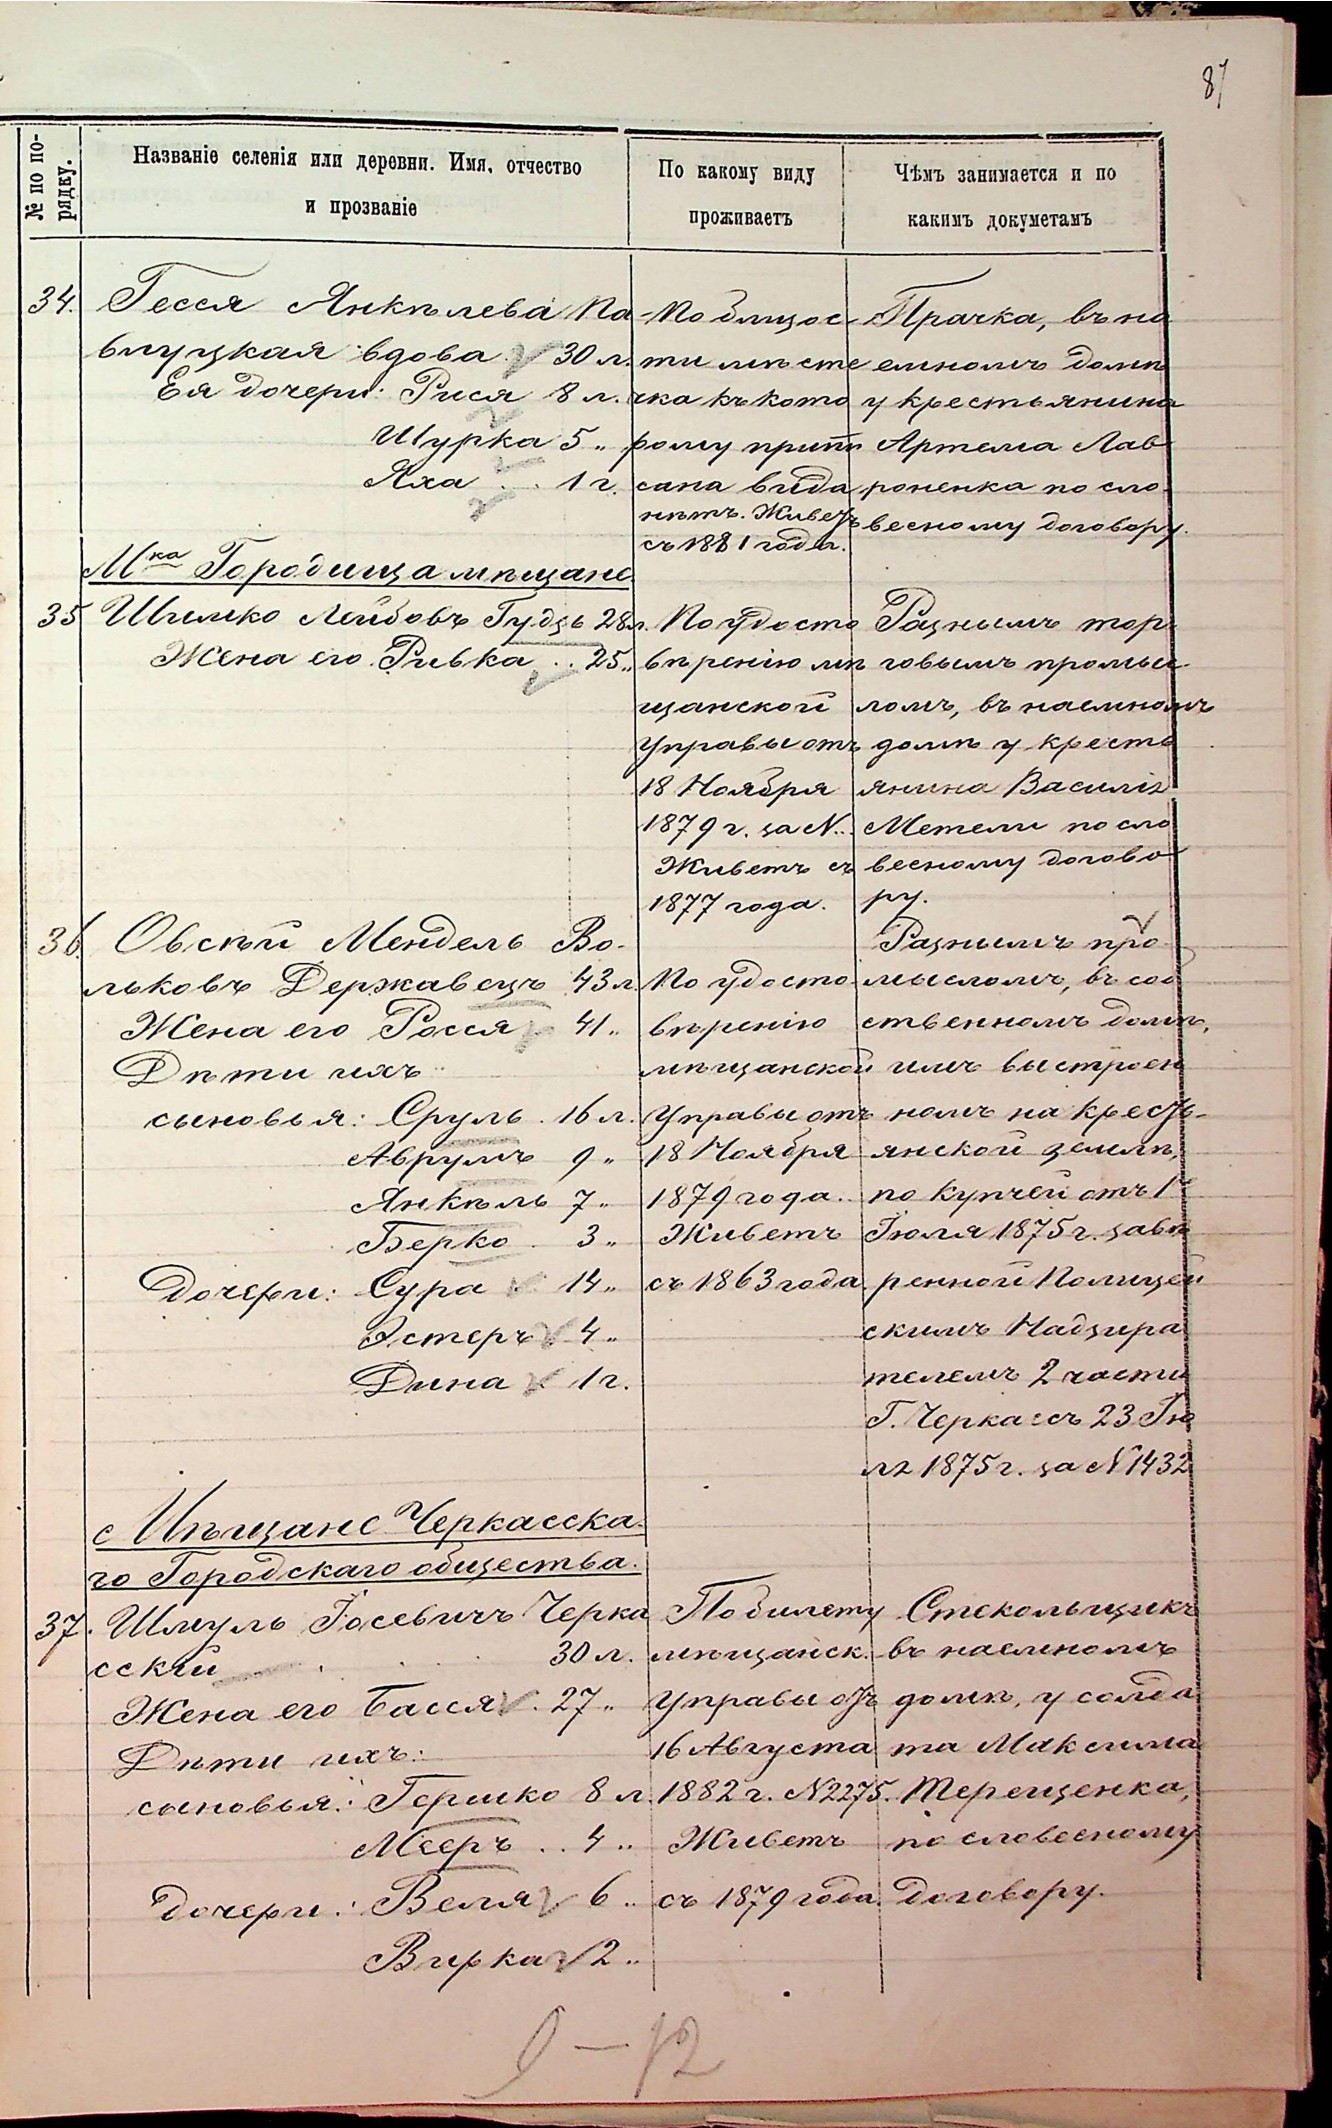 87
№ по по-
рядку.
Названіе селенія или деревни. Имя, отчество
и прозваніе
По какому виду
проживаетъ
Чѣмъ занимается и по
какимъ докуметамъ
34. Гесся Янкѣлева Па
влуцкая вдова 30 л.
Ея дочери: Рися 8 л.
Шурка 5 "
Яха 1 г.
По близос-
ти мѣсте
чка къ кото
рому припи
сана вида
нѣтъ. Живетъ
съ 1881 года.
Прачка, въ на
емномъ домѣ
у крестьянина
Артема Лав
роненка по сло-
весному договору.
Мка Городища мѣщане
35 Шлемко Лейбовъ Гудзь 28 л.
Жена его Ривка .. 25 "
По удосто
вѣренію мѣ
щанской
Управы отъ
18 Ноября
1879 г. за N..
Живетъ съ
1877 года.
Разнымъ тор-
говымъ промыс
ломъ, въ наемномъ
домѣ у кресть
янина Василія
Метели по сло
весному догово
ру.
36. Овсѣй Мендель Во-
льковъ Державецъ 43 л.
Жена его Росся 41 "
Дѣти ихъ
сыновья: Сруль . 16 л.
Аврумъ 9 "
Янкѣль 7 "
Берко . 3 "
Дочери: Сура 14 "
Эстеръ 4 "
Дина 1 г.
По удосто-
вѣренію
мѣщанской
Управы отъ
18 Ноября
1879 года.
Живетъ
съ 1863 года.
Разнымъ про-
мысломъ, въ соб
ственномъ домѣ,
имъ выстроен
номъ на кресть-
янской землѣ,
по купчей отъ 1го
Іюля 1875 г. завѣ
ренной Полицей
скимъ Надзира
телемъ 2 части
Г. Черкассъ 23 Ію
ля 1875 г. за N 1432
Мѣщане Черкасска-
го Городскаго общества.
37. Шмуль Іосевичъ Черка
сскій 30 л.
Жена его Бася . 27 "
Дѣти ихъ:
сыновья: Гершко 8 л.
Мееръ .. 4 "
дочери: Веля 6 "
Вирка 2 "
По билету
мѣщанск.
Управы отъ
16 Августа
1882 г. N 2275.
Живетъ
съ 1879 года.
Стекольщикъ
въ наемномъ
домѣ, у солда
та Максима
Терещенка,
по словесному
договору.
9 – 12